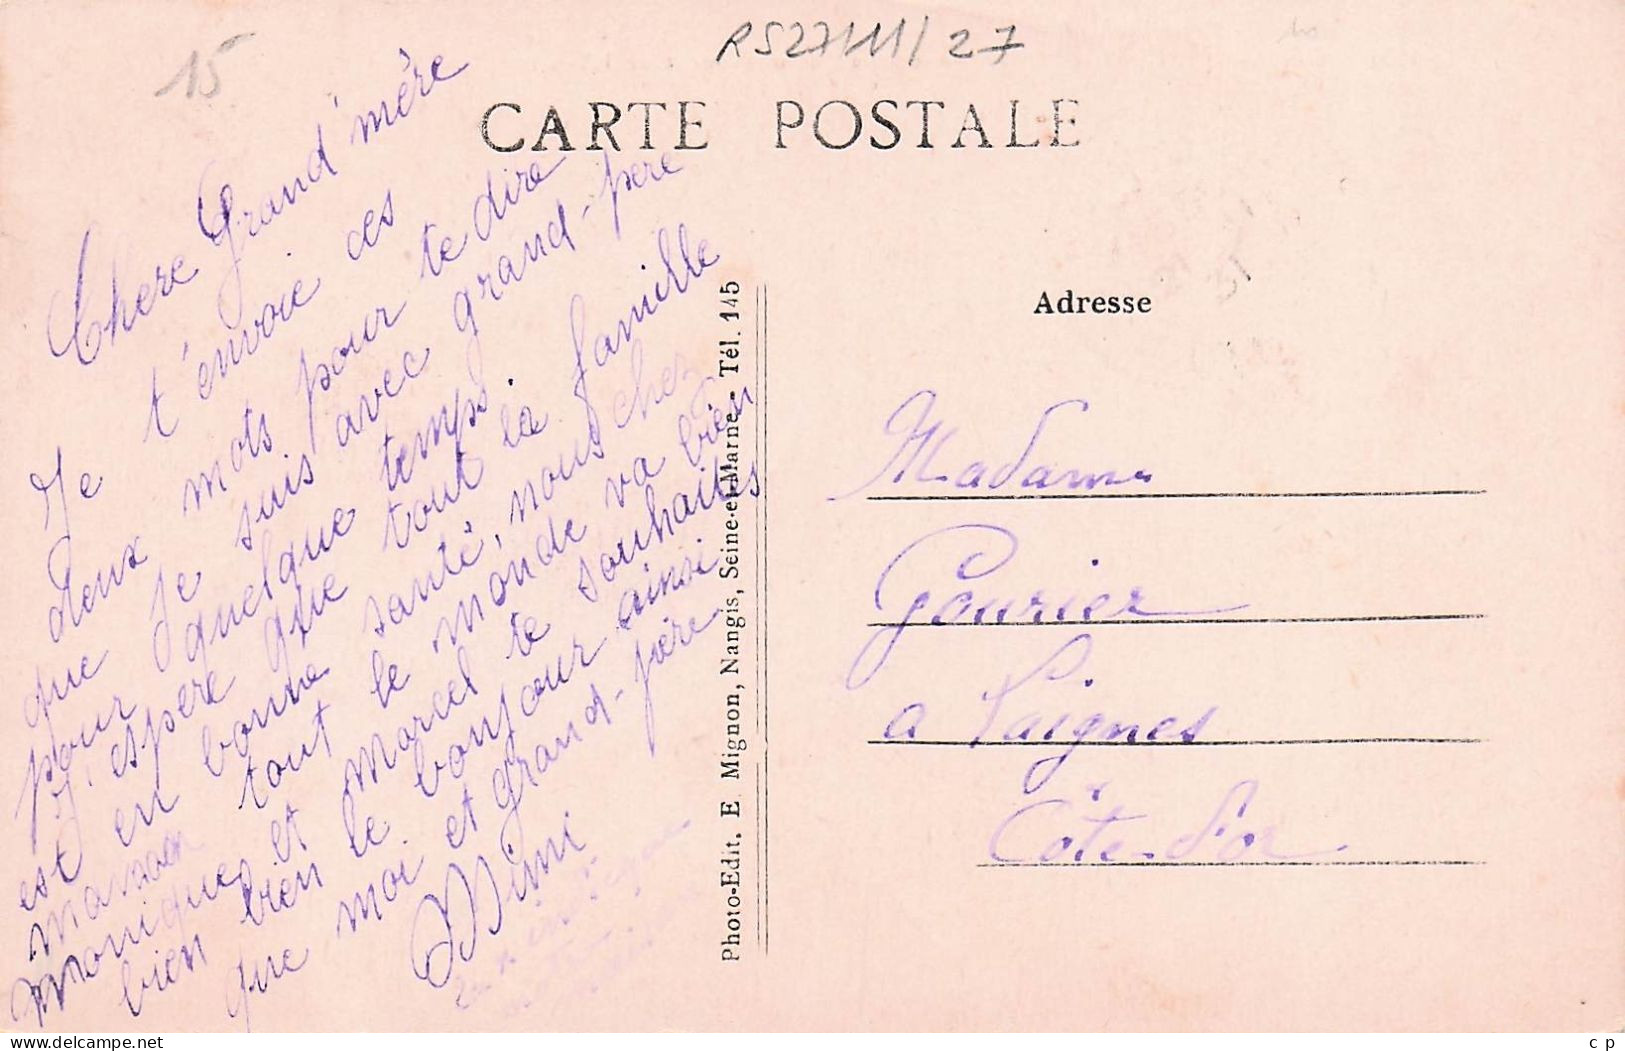 15
RS27111/27
CARTE POSTALE
Chere Grand'mère
Je t'envoie ces
deux mots pour te dire
que je suis avec grand-pere
pour quelque temps.
J'espere que tout la famille
est en bonne santé, nous chez
maman tout le monde va bien
Moniques et Marcel te souhaites
bien bien le bonjour ainsi
que moi et grand-père
Mimi
Photo-Edit. E. Mignon, Nangis, Seine-et-Marne - Tél. 145
Adresse
Madame
Gourier
a Laignes
Côte-d'or